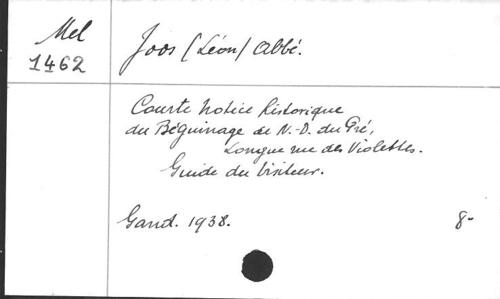 Mel
1462
Joos (Léon) Abbé.
Courte notice historique
du Béguinage de N.-D. du Pré,
Longue rue des Violettes.
Guide du Visiteur.
Gand. 1938.
8-